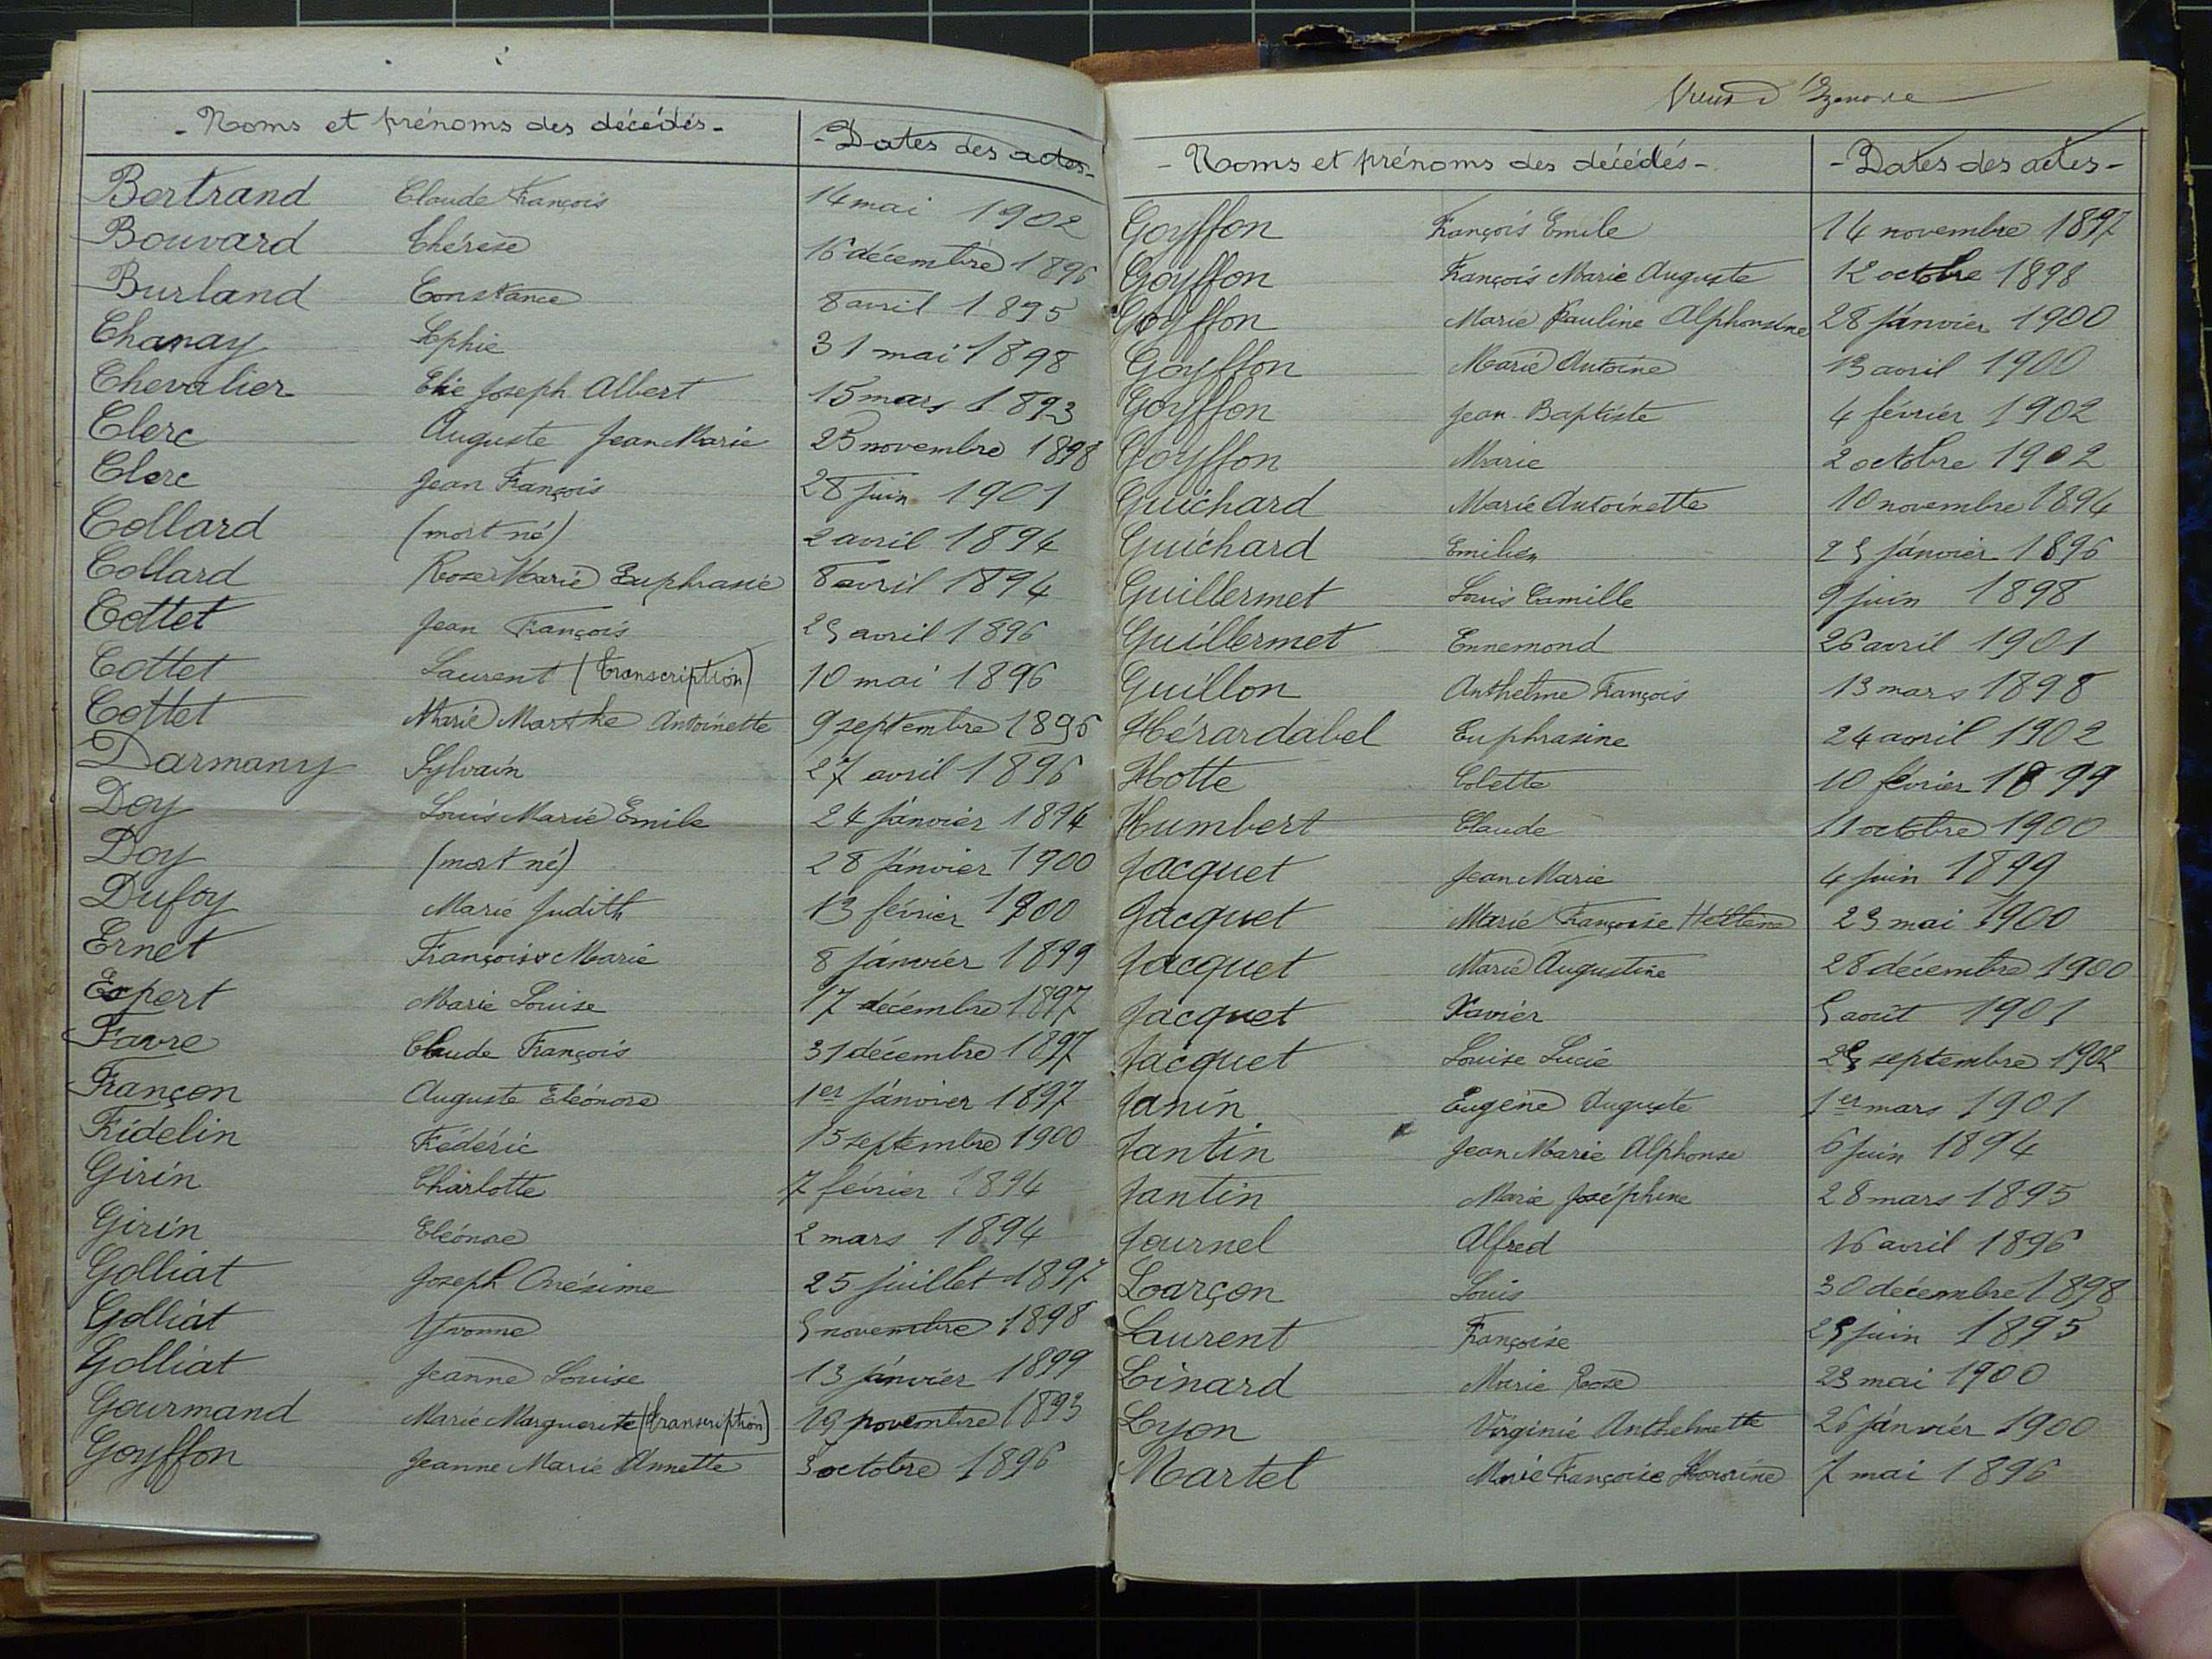 - Noms et prénoms des décédés -
- Dates des actes -
Bertrand Claude François 14 mai 1902
Bouvard Thérèse 16 décembre 1896
Burland Constance 8 avril 1895
Chanay Sophie 31 mai 1898
Chevalier Elie Joseph Albert 15 mars 1893
Clerc Auguste Jean Marie 25 novembre 1898
Clerc Jean François 28 juin 1901
Collard (mort né) 2 avril 1894
Collard Rose Marie Euphrasie 8 avril 1894
Cottet Jean François 25 avril 1896
Cottet Laurent (transcription) 10 mai 1896
Cottet Marie Marthe Antoinette 9 septembre 1896
Darmany Sylvain 27 avril 1896
Doy Louis Marie Emile 24 janvier 1894
Doy (mort né) 28 janvier 1900
Dufoy Marie Judith 13 février 1900
Ernet François Marie 8 janvier 1899
Expert Marie Louise 17 décembre 1897
Favre Claude François 31 décembre 1897
Françon Auguste Eléonore 1er janvier 1897
Fidelin Fédéric 15 septembre 1900
Girin Charlotte 7 février 1894
Girin Eléonore 2 mars 1894
Golliat Joseph Onésime 25 juillet 1897
Golliat Yvonne 5 novembre 1898
Golliat Jeanne Louise 13 janvier 1899
Gourmand Marie Marguerite (transcription) 19 novembre 1893
Goyffon Jeanne Marie Annette 3 octobre 1896
- Noms et prénoms des décédés -
- Dates des actes -
Goyffon François Emile 14 novembre 1897
Goyffon François Marie Auguste 12 octobre 1898
Goyffon Marie Pauline Alphonsine 28 janvier 1900
Goyffon Marie Antoine 13 avril 1900
Goyffon Jean-Baptiste 4 février 1902
Goyffon Marie 2 octobre 1902
Guichard Marie Antoinette 10 novembre 1894
Guichard Emilien 25 janvier 1896
Guillermet Louis Camille 9 juin 1898
Guillermet Ennemond 26 avril 1901
Guillon Anthelme François 13 mars 1898
Hérardabel Euphrasine 24 avril 1902
Hotte Colette 10 février 1899
Humbert Claude 11 octobre 1900
Jacquet Jean Marie 4 juin 1899
Jacquet Marie Françoise 23 mai 1900
Jacquet Marie Augustine 28 décembre 1900
Jacquet Xavier 5 août 1901
Jacquet Louise Lucie septembre 1902
Janin Eugène Auguste 1er mars 1901
Jantin Jean Marie Alphonse 6 juin 1894
Jantin Marie Joséphine 28 mars 1895
Journel Alfred 16 avril 1896
Larçon Louis 30 décembre 1898
Laurent Françoise 25 juin 1895
Linard Marie Rose 23 mai 1900
Lyon Virginie Anthelmette 26 janvier 1900
Martel Marie Françoise 7 mai 1896